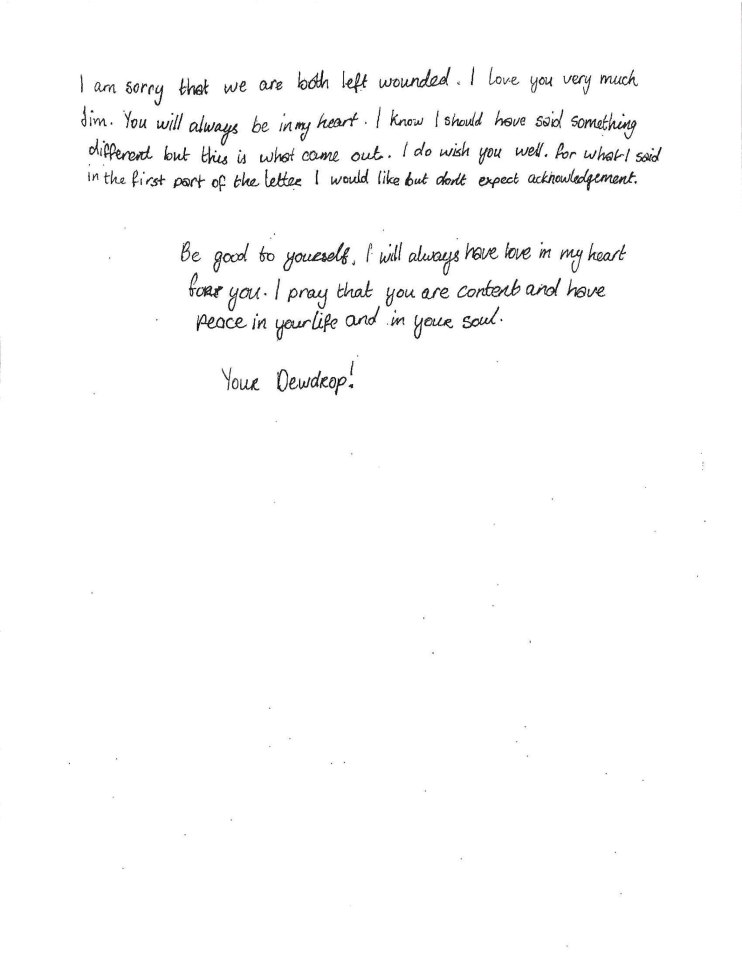 I am sorry that we are both left wounded. I love you very much
Jim. You will always be in my heart. I know I should have said something
different but this is what came out. I do wish you well. For what I said
in the first part of the letter I would like but don't expect acknowledgement.
Be good to yourself, I will always have love in my heart
for you. I pray that you are content and have
peace in your life and in your soul.
Your Dewdrop!